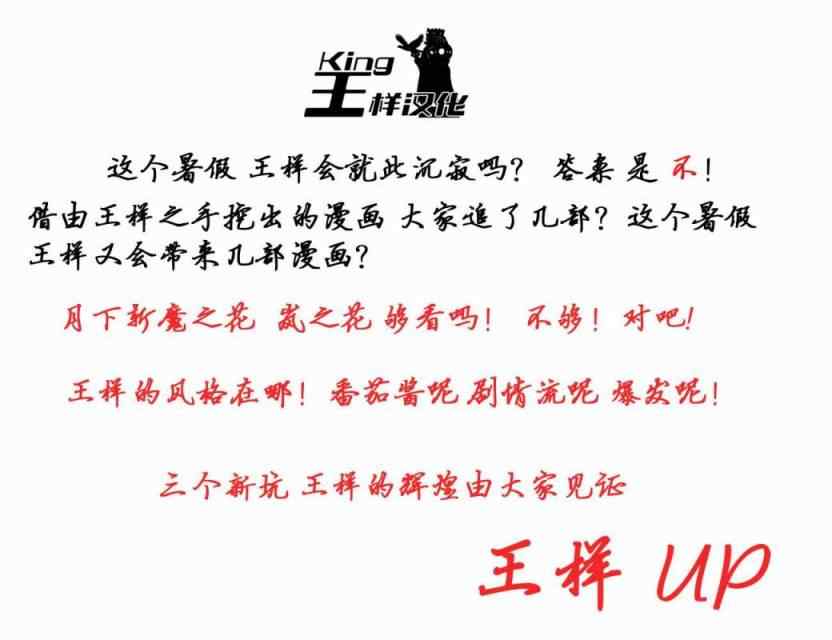 King
王样汉化
这个暑假 王样会就此沉寂吗? 答案是 不!
借由王样之手挖出的漫画 大家追了几部? 这个暑假
王样又会带来几部漫画?
月下斩魔之花 岚之花 够看吗! 不够! 对吧!
王样的风格在哪! 番茄酱呢 剧情流呢 爆发呢!
三个新坑 王样的辉煌由大家见证
王样 UP